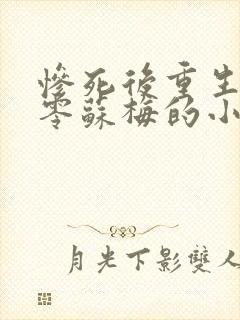 慘死後重生
零蘇梅的小
月光下影雙人